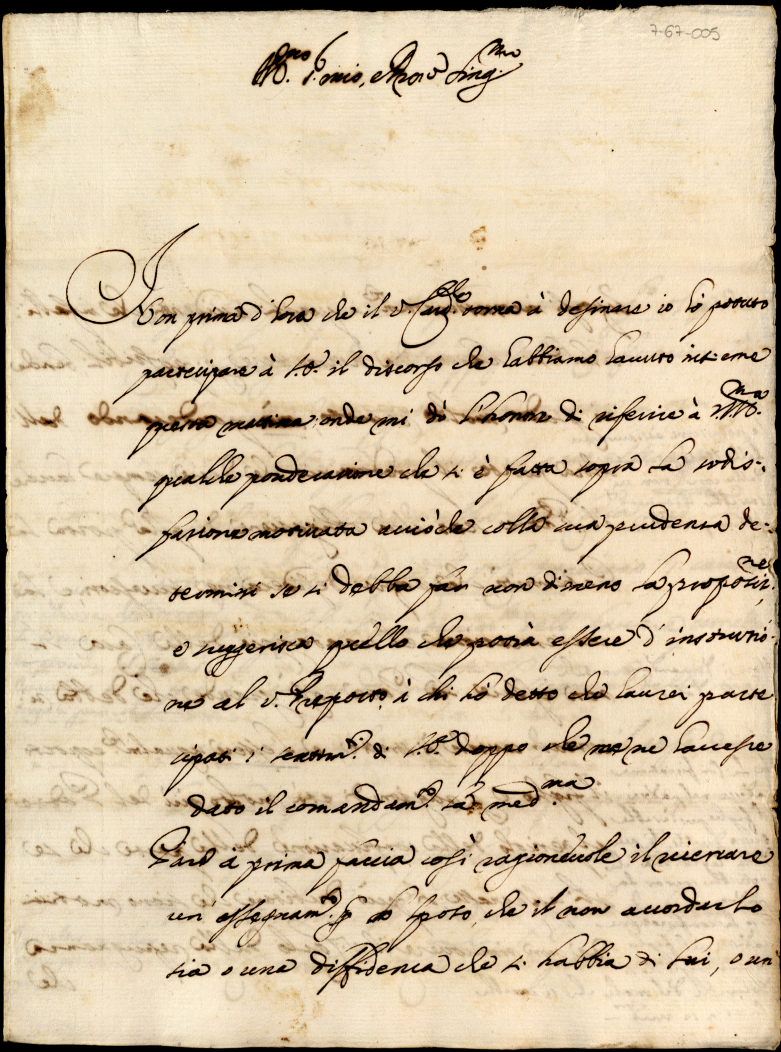 7-67-005
Ill.mo S. mio, e Pron Sing.mo
Non prima d'hora che il S. Cav.e torna à desinare io hò potuto
partecipare à S.E. il discorso che habbiamo hauuto insieme
questa mattina onde mi dò l'honore di riferire à V.S. Ill.ma
qualche ponderatione che si è fatta sopra la sodis-
fatione motivata acciòche colla sua prudenza de-
termini se si debba far non di meno la propositne,
e suggerisca quello che potrà essere d'instrutio-
ne al S. Preposto à chi hò detto che haurei parte
cipati i sentim.ti di S.E. doppo che me ne hauesse
dato il comandam.to la med.ma
Pare à prima faccia così ragioneuole il ricercare
un' assegnam.to p lo sposo, che il non accordarlo
sia o una diffidenza che si habbia di lui, o un